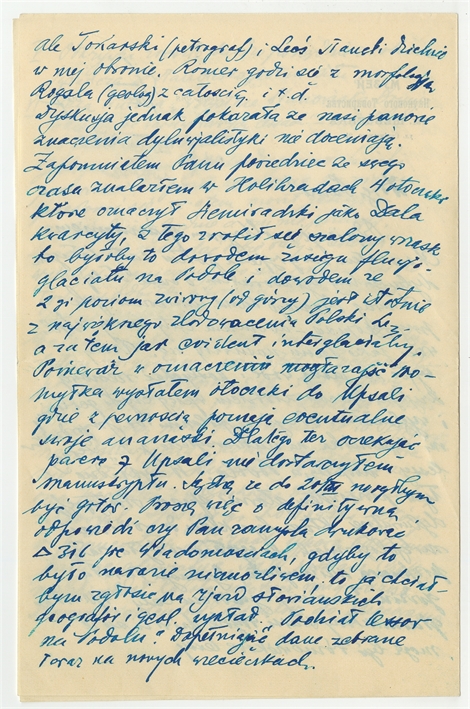 ale Tokarski (petrograf) i Leoś Sawicki dzielnie
w mej obronie. Romer godzi się z morfologią
Rogala (geolog) z całością. i t. d.
Dyskusja jednak pokazała że nasi panowie
znaczenia dyluwjalistyki nie doceniają.
Zapomniałem Panu powiedzieć że swego
czasu znalazłem w Holihradach 4 otoczaki
które oznaczył Siemiradzki jako Dala
kwarcyty, z tego zrobił się szalony wrzask
bo byłby to dowodem zasięgu fluwjo-
glaciału na Podole i dowodem że
2 gi poziom żwirowy (od góry) jest istotnie
z największego zlodowacenia Polski
a zatem jak evident interglacialny.
Ponieważ w oznaczeniu mogła zajść po-
myłka wysłałem otoczaki do Upsali
gdzie z pewnością poznają ewentualne
swoje ananaski. Dlatego też oczekując
z Upsali nie dostarczyłem
manuskryptu. Myślę że do 20 mógłbym
być gotów. Proszę więc o definitywną
odpowiedź czy Pan zamyśla drukować
we Wiadomościach, gdyby to
było narazie niemożliwem, to ja chciał-
bym zgłosić na zjazd słowiańskich
geografów i geol. wykład "Podział lessów
na Podolu" dopełniając dane zebrane
teraz na nowych wycieczkach.